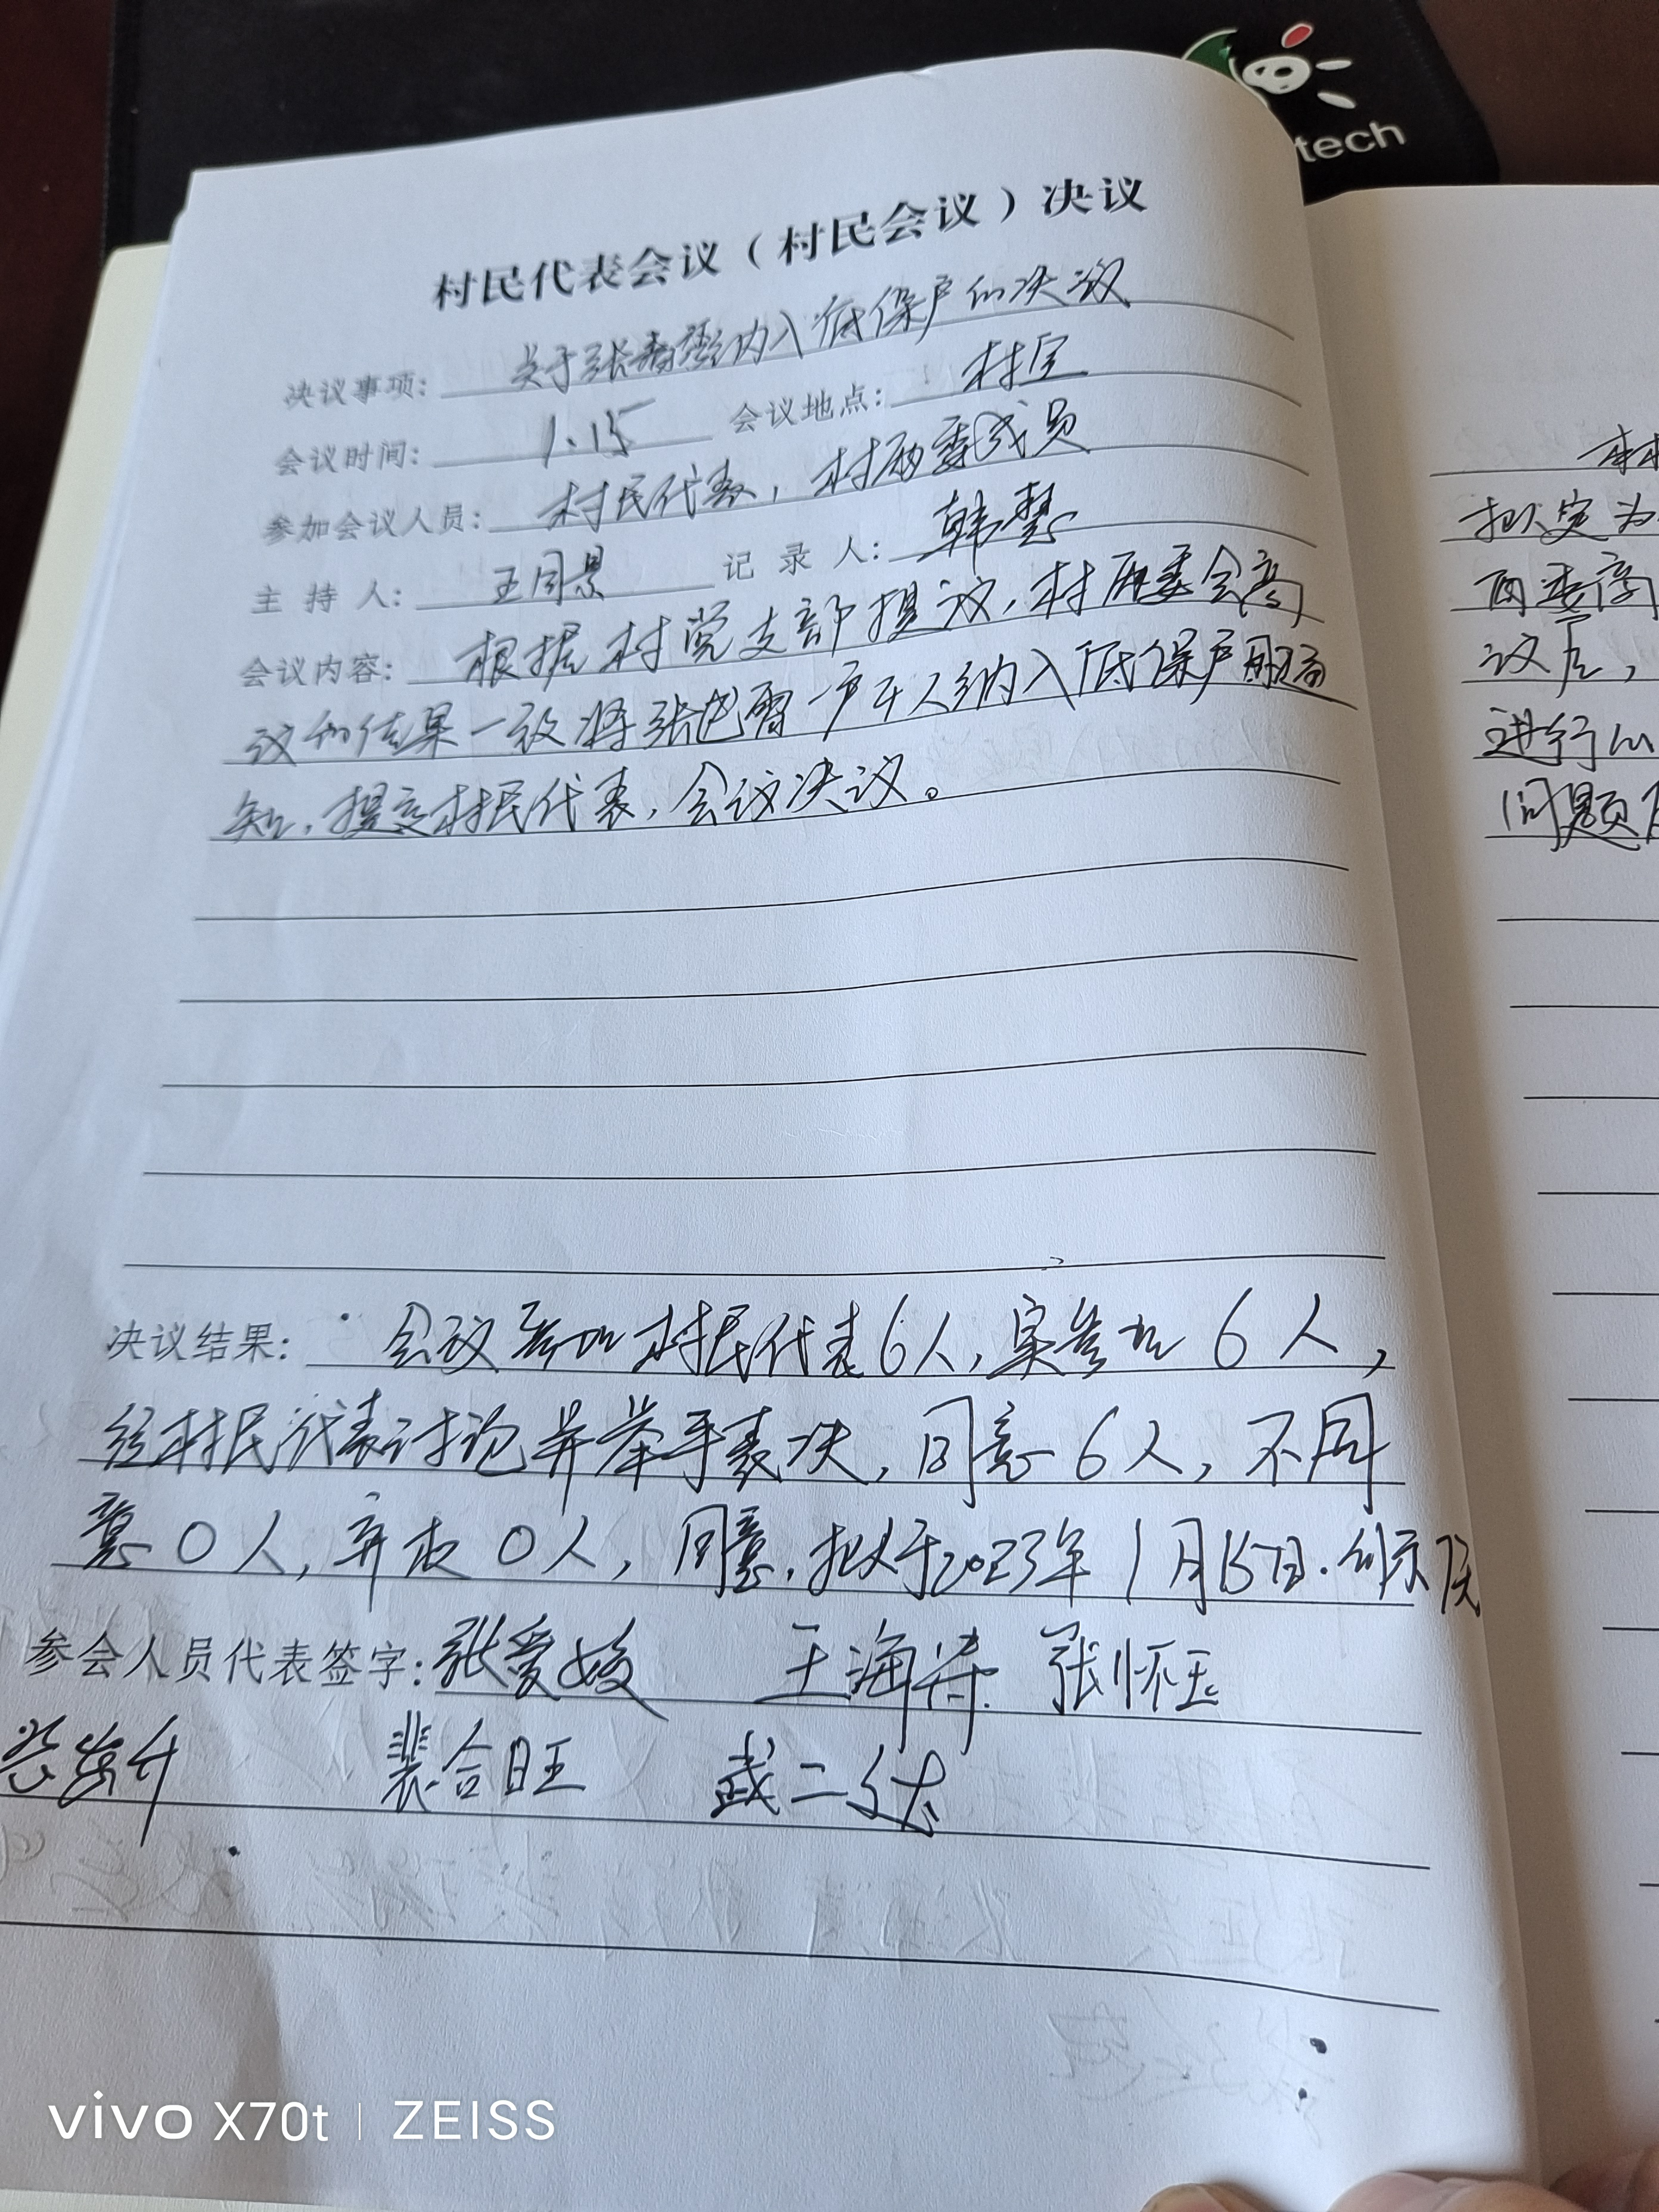 tech
村民代表会议（村民会议）决议
决议事项： 关于张纳入低保户的决议
会议时间： 1.15 会议地点： 村室
参加会议人员： 村民代表，村两委成员
主 持 人： 王同景 记 录 人： 韩慧
会议内容： 根据村党支部提议，村两委会商
议的结果一致将张一户纳入低保户
知，提交村民代表，会议决议。
决议结果： 会议参加村民代表6人，实参加 6 人，
经村民代表讨论并举手表决，同意 6人，不同
意 0 人，弃权 0人，同意，拟于2023年 1月15日.
参会人员代表签字： 张爱姣 王海 张怀玉
裴合旺 武二
村
拟定为
两委商
议后，
进行
问题
vivo X70t | ZEISS